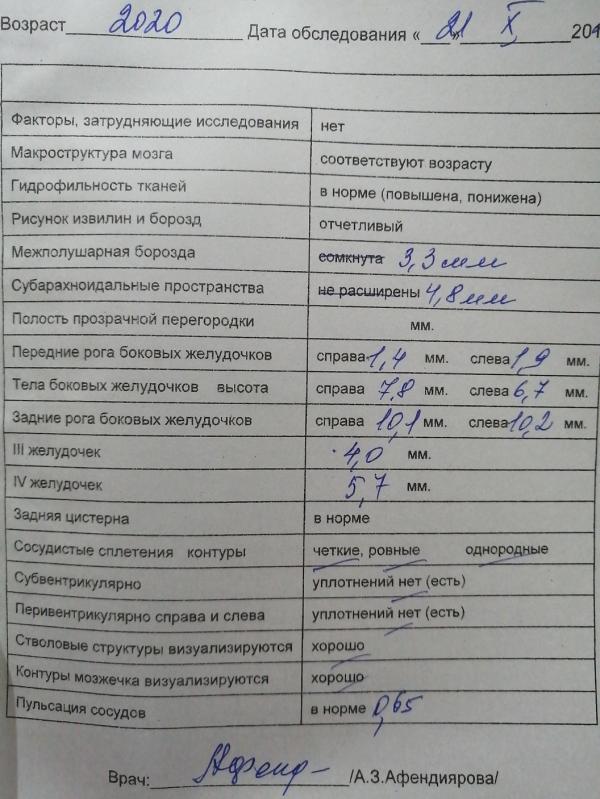 Возраст 2020 Дата обследования «21» X 204
Факторы, затрудняющие исследования нет
Макроструктура мозга соответствуют возрасту
Гидрофильность тканей в норме (повышена, понижена)
Рисунок извилин и борозд отчетливый
Межполушарная борозда сомкнута 3,3 мм
Субарахноидальные пространства не расширены 4,8 мм
Полость прозрачной перегородки мм.
Передние рога боковых желудочков справа 1,4 мм. слева 1,9 мм.
Тела боковых желудочков высота справа 7,8 мм. слева 6,7 мм.
Задние рога боковых желудочков справа 10,1 мм. слева 10,2 мм.
III желудочек 4,0 мм.
IV желудочек 5,7 мм.
Задняя цистерна в норме
Сосудистые сплетения контуры четкие, ровные однородные
Субвентрикулярно уплотнений нет (есть)
Перивентрикулярно справа и слева уплотнений нет (есть)
Стволовые структуры визуализируются хорошо
Контуры мозжечка визуализируются хорошо
Пульсация сосудов в норме 0,65
Врач: /А.З.Афендиярова/